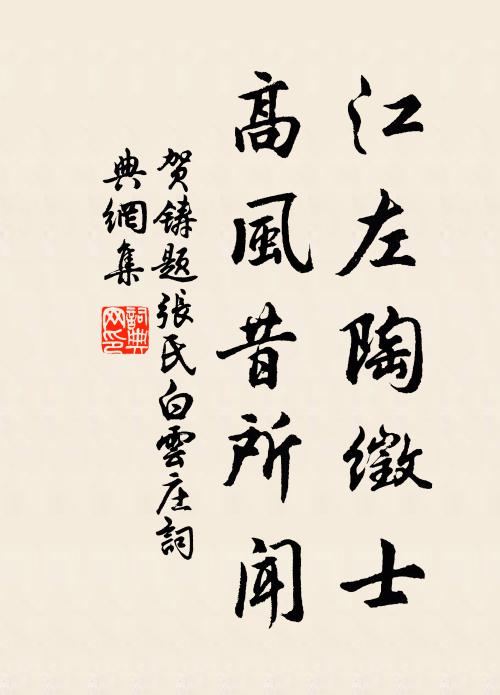 江左陶徵士
高風昔所闻
贺鑄题張氏白雲庄詞
典網集
詞典网印